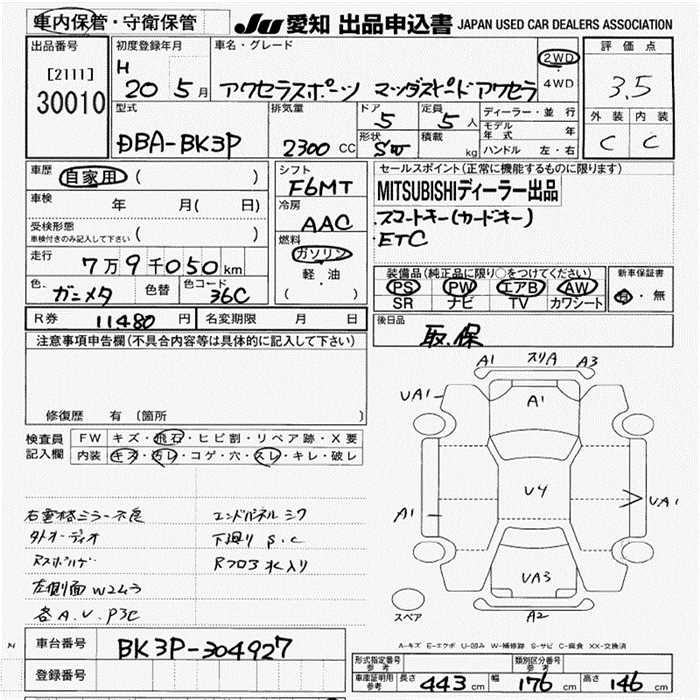 車内保管・守衛保管 JU 愛知 出品申込書 JAPAN USED CAR DEALERS ASSOCIATION
出品番号 初度登録年月 車名・グレード 2WD 評価点
[2111] H アクセラスポーツ マツダスピードアクセラ ・
30010 20 5月 4WD 3.5
型式 排気量 ドア 定員 ディーラー・並行 外装 内装
DBA-BK3P 2300 CC 5 5人 モデル年式 年 C C
形状 積載 kg ハンドル 左・右
車歴 自家用 ( ) シフト セールスポイント(正常に機能するものに限ります)
F6MT MITSUBISHIディーラー出品
車検 年 月( 日) 冷房 ・スマートキー(カードキー)
受検形態 AAC ・ETC
車検付きのみ記入して下さい ( ) 燃料
走行 7万9千050km ガソリン 装備品(純正品に限り○をつけてください) 新車保証書
軽・油 PS PW エアB AW 有・無
色 ガンメタ 色替 色コード 36C ( ) SR ナビ TV カワシート
R券 11480円 名変期限 月 日 後日品
注意事項申告欄(不具合内容等は具体的に記入して下さい) 取.保
修復歴 有 (箇所 )
検査員 FW キズ・飛石・ヒビ割・リペア跡・X要
記入欄 内装 キズ・汚レ・コゲ・穴・スレ・キレ・破レ
A1 スリA A3
UA1 A1
U4
A1 UA1
UA3
スペア A2
エンドパネルシワ
外オーディオ 下廻りS.C
左側面W2ムラ
各A.U.P3C
A-キズ E-エクボ U-凹み W-補修跡 S-サビ C-腐食 XX-交換済
車台番号 BK3P-304927
登録番号
形式指定番号参考 類別区分番号参考
車庫証明用参考 長さ 443cm 幅 176cm 高さ 146cm